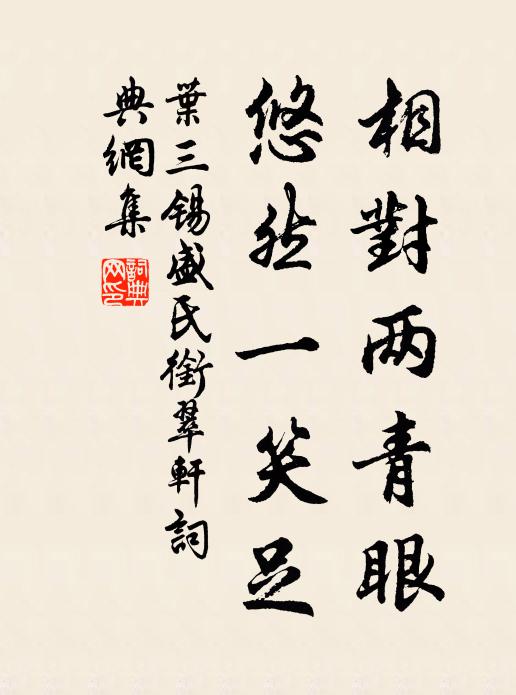 相對两青眼
悠然一笑足
葉三錫盛氏銜翠軒詞
典網集
詞典
网印